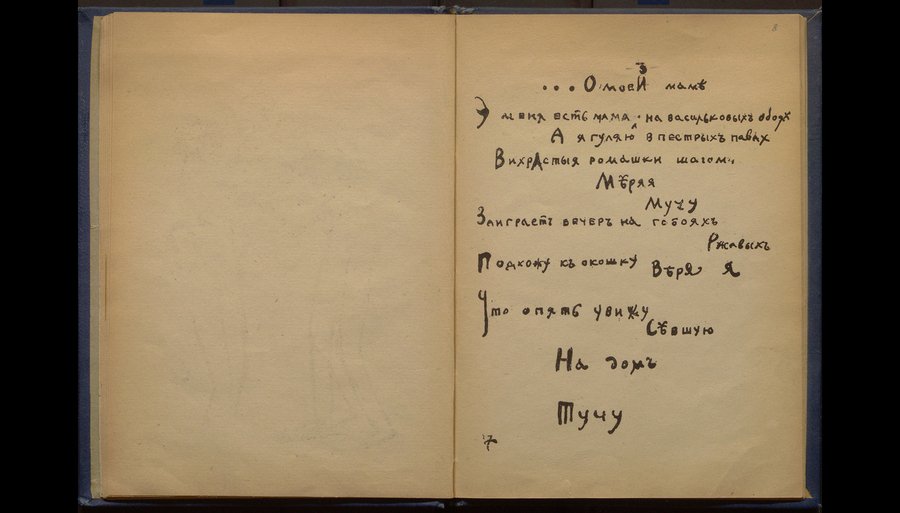 8
3
...О моей мамѣ
У меня есть мама • на васильковыхъ обояхъ
А я гуляю в пестрыхъ павахъ
Вихрастыя ромашки шагомъ
Мѣряя
Мучу
Заиграетъ вечеръ на гобояхъ
Ржавыхъ
Подхожу къ окошку
Вѣря я
Что опять увижу
Сѣвшую
На домъ
Тучу
7